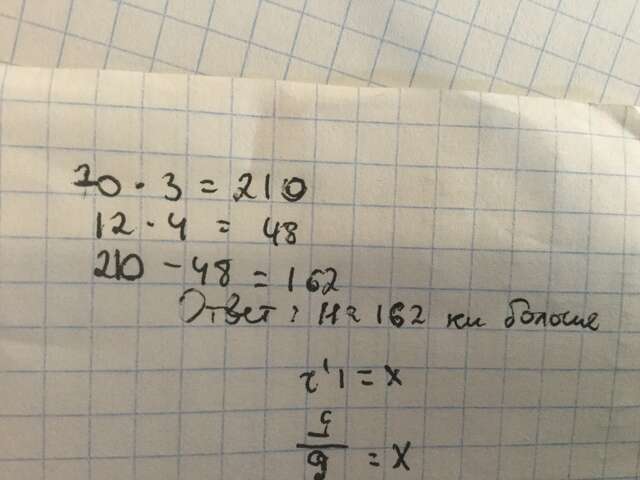 70 · 3 = 210
12 · 4 = 48
210 - 48 = 162
Ответ: На 162 км больше
x = 6/5
x = 1,2